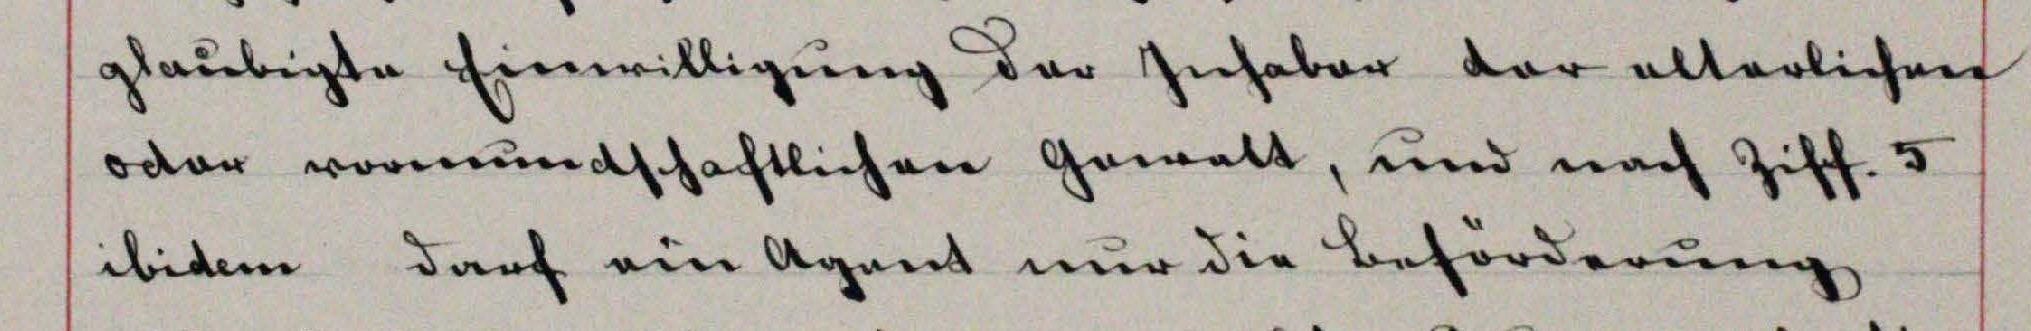 glaubigte Einwilligung der Inhaber der elterlichen
oder vormundschaftlichen Gewalt, und nach Ziff. 5
ibidem darf ein Agent nur die Beförderung